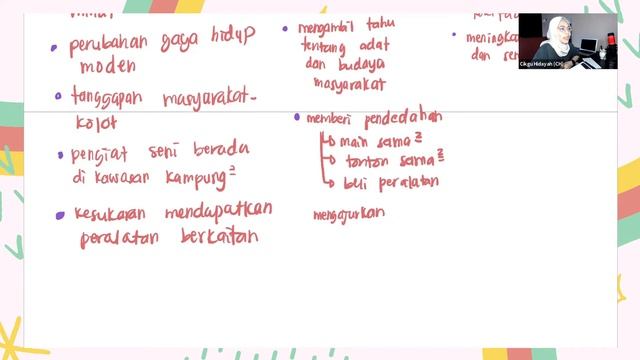 perubahan gaya hidup
moden
tanggapan masyarakat-
kolot
pengiat seni berada
di kawasan kampung²
kesukaran mendapatkan
peralatan berkaitan
mengambil tahu
tentang adat
dan budaya
masyarakat
memberi pendedahan
main sama²
tonton sama²
beli peralatan
mengajurkan
dan
Cikgu Hidayah (CH)